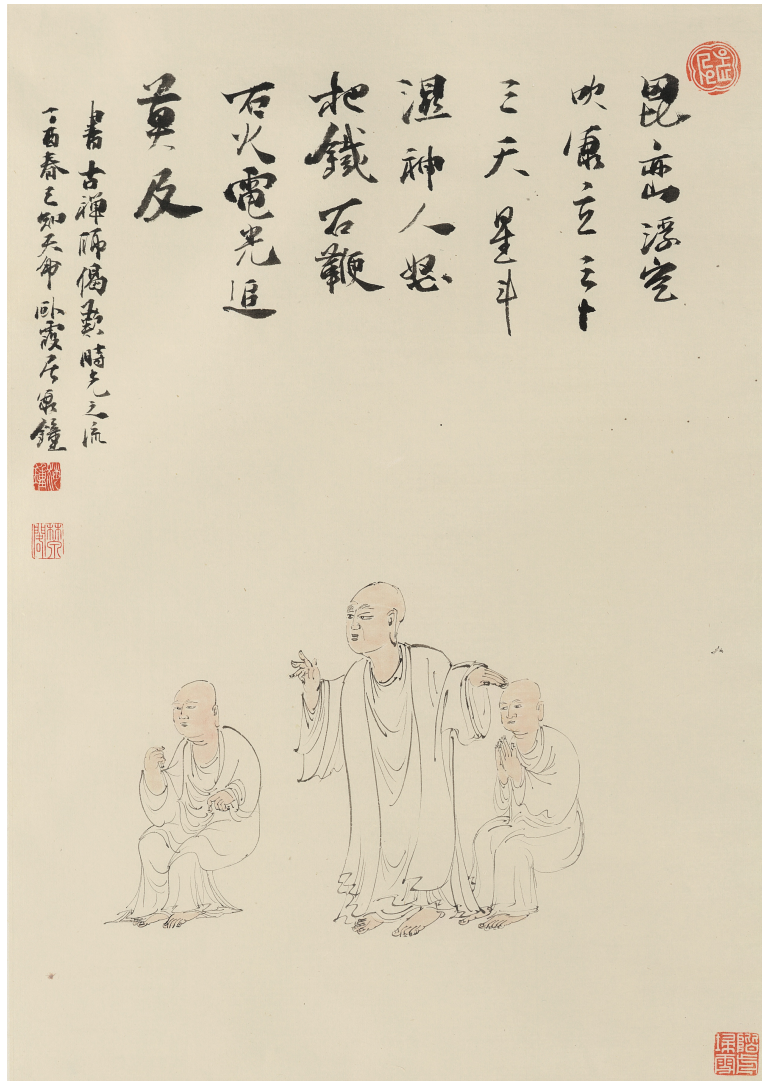 浮空
吹立三十
三天星斗
濕神人怒
把鐵石鞭
石火電光追
莫及
書古禪師偈歎時光之流
丁酉春已知天命臥霞居鐘